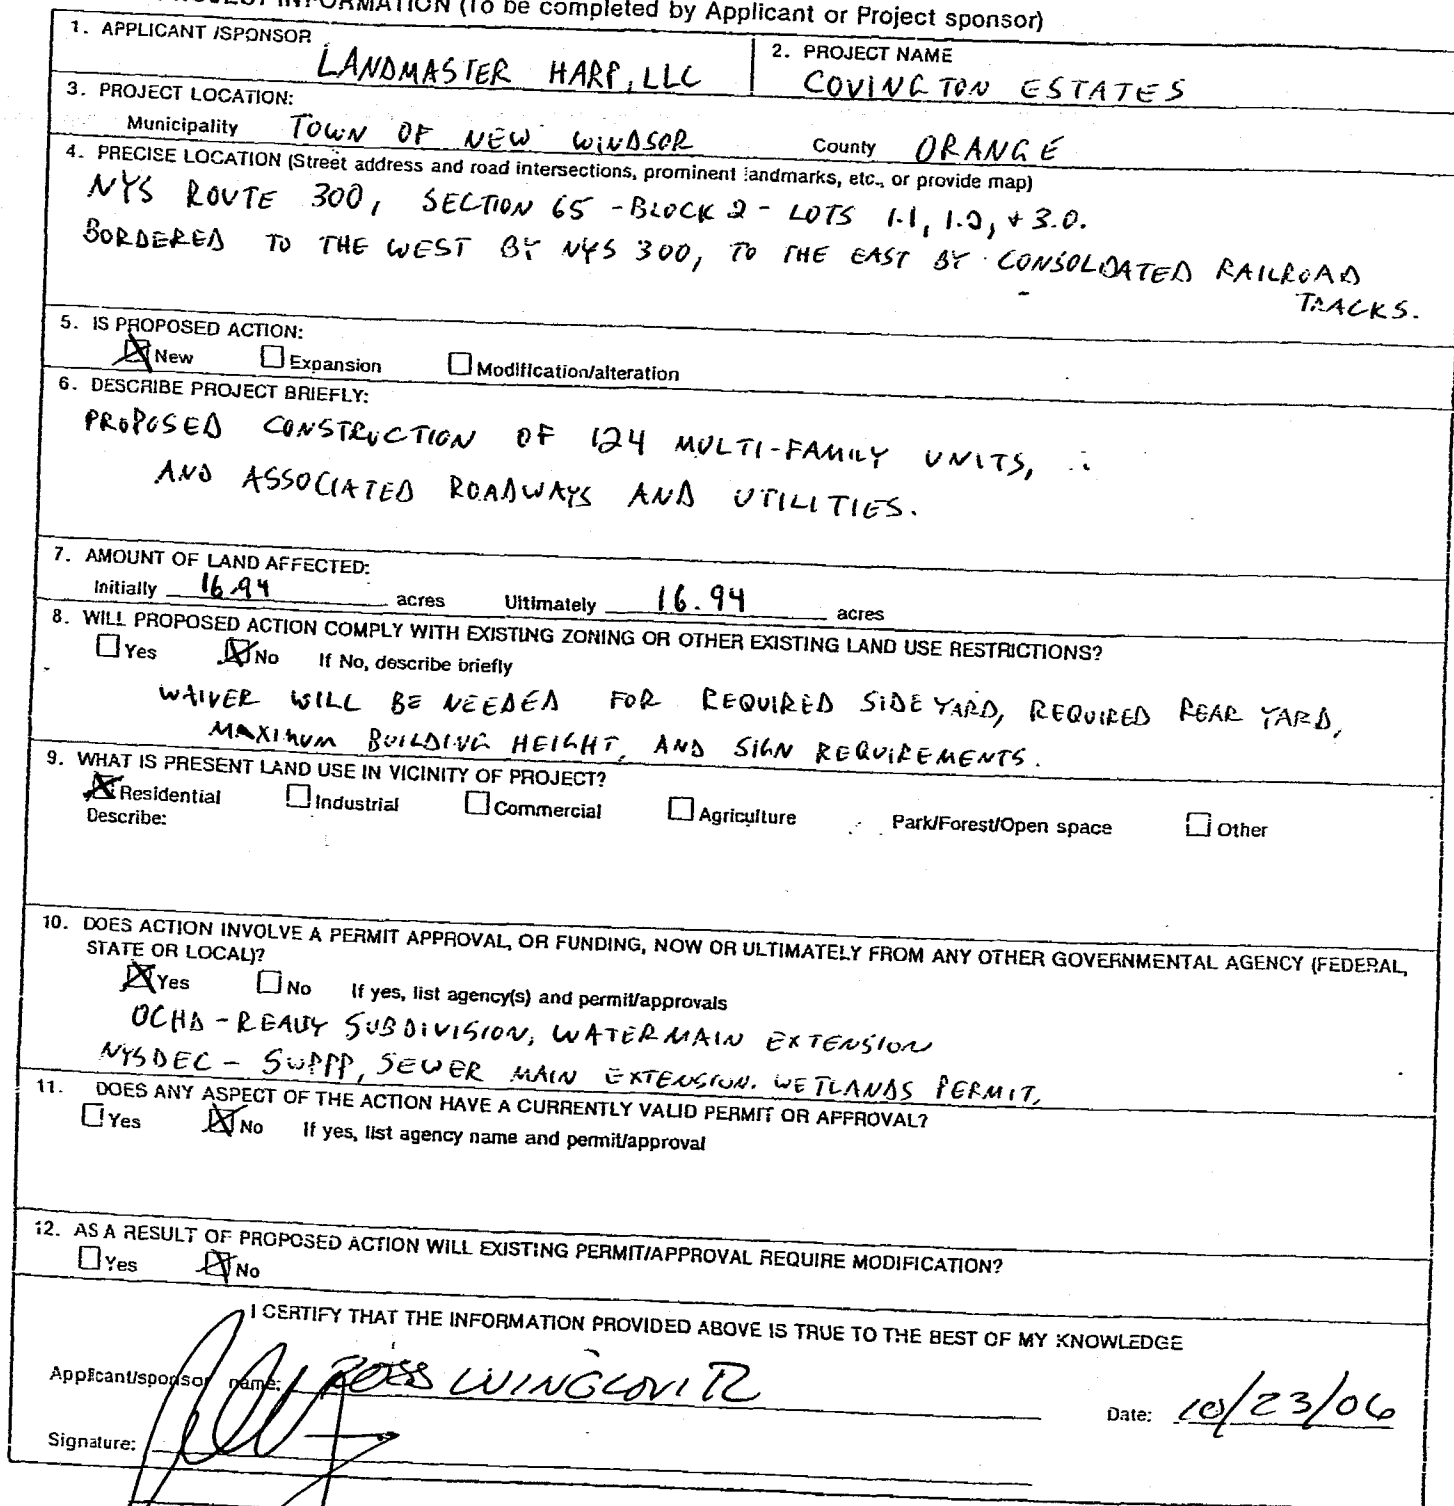 INFORMATION (To be completed by Applicant or Project sponsor)
1. APPLICANT /SPONSOR
LANDMASTER HARP, LLC
2. PROJECT NAME
COVINGTON ESTATES
3. PROJECT LOCATION:
Municipality TOWN OF NEW WINDSOR County ORANGE
4. PRECISE LOCATION (Street address and road intersections, prominent landmarks, etc., or provide map)
NYS ROUTE 300, SECTION 65 - BLOCK 2 - LOTS 1.1, 1.2, + 3.0.
BORDERED TO THE WEST BY NYS 300, TO THE EAST BY CONSOLDATED RAILROAD
TRACKS.
5. IS PROPOSED ACTION:
New Expansion Modification/alteration
6. DESCRIBE PROJECT BRIEFLY:
PROPOSED CONSTRUCTION OF 124 MULTI-FAMILY UNITS,
AND ASSOCIATED ROADWAYS AND UTILITIES.
7. AMOUNT OF LAND AFFECTED:
Initially 16.94 acres Ultimately 16.94 acres
8. WILL PROPOSED ACTION COMPLY WITH EXISTING ZONING OR OTHER EXISTING LAND USE RESTRICTIONS?
Yes No If No, describe briefly
WAIVER WILL BE NEEDED FOR REQUIRED SIDE YARD, REQUIRED REAR YARD,
MAXIMUM BUILDING HEIGHT, AND SIGN REQUIREMENTS.
9. WHAT IS PRESENT LAND USE IN VICINITY OF PROJECT?
Residential Industrial Commercial Agriculture Park/Forest/Open space Other
Describe:
10. DOES ACTION INVOLVE A PERMIT APPROVAL, OR FUNDING, NOW OR ULTIMATELY FROM ANY OTHER GOVERNMENTAL AGENCY (FEDERAL,
STATE OR LOCAL)?
Yes No If yes, list agency(s) and permit/approvals
OCHD - REALTY SUBDIVISION, WATERMAIN EXTENSION
NYSDEC - SWPPP, SEWER MAIN EXTENSION. WETLANDS PERMIT,
11. DOES ANY ASPECT OF THE ACTION HAVE A CURRENTLY VALID PERMIT OR APPROVAL?
Yes No If yes, list agency name and permit/approval
12. AS A RESULT OF PROPOSED ACTION WILL EXISTING PERMIT/APPROVAL REQUIRE MODIFICATION?
Yes No
I CERTIFY THAT THE INFORMATION PROVIDED ABOVE IS TRUE TO THE BEST OF MY KNOWLEDGE
Applicant/sponsor name: ROSS WINGLOVITZ
Date: 10/23/06
Signature: